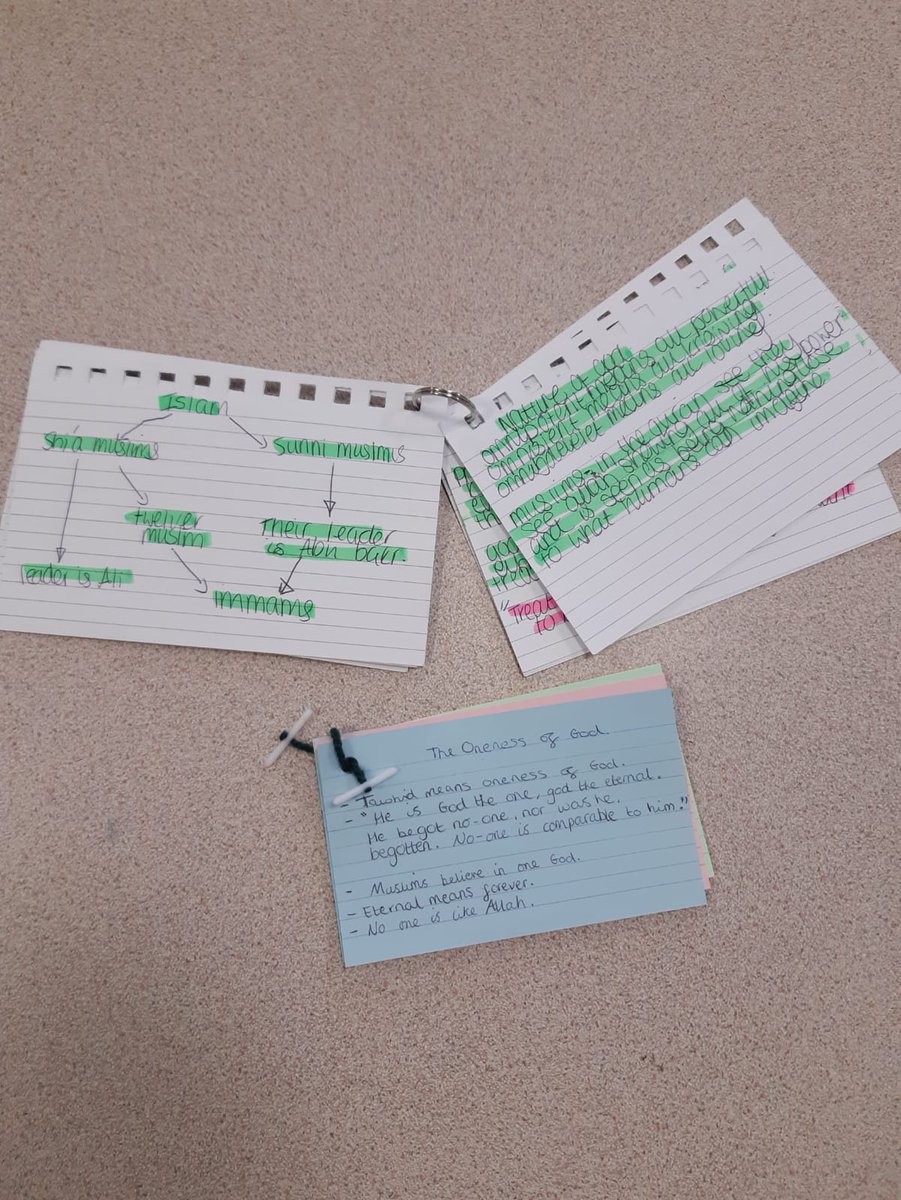 Islam
Shi'a muslims
Sunni muslims
twelver
muslim
Their leader
is Abu bakr.
leader is Ali
immams
Nature of God
omnipotent means all powerful
omniscient means all knowing
omnibenevolent means all loving.
muslims in the quran see they
and is seen as being
to what humans can imagine
"Treat
to
The Oneness of God.
- Tawhid means oneness of God.
- "He is God the one, god the eternal.
He begot no-one, nor was he
begotten. No-one is comparable to him."
- Muslims believe in one God.
- Eternal means forever.
- No one is like Allah.